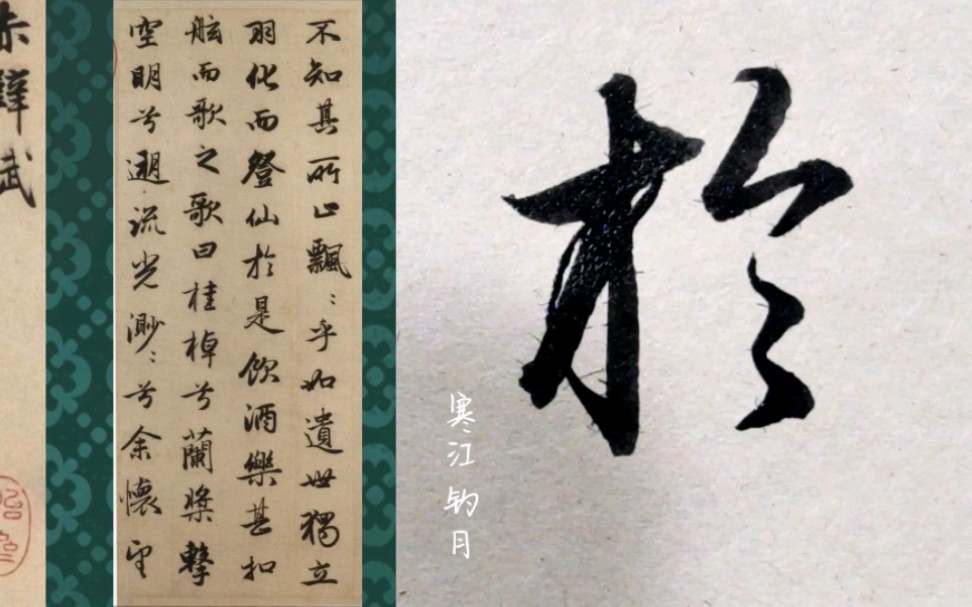 於
寒江钓月
不知其所止飄〻乎如遺世獨立
羽化而登仙於是飲酒樂甚扣
舷而歌之歌曰桂棹兮蘭槳擊
空明兮遡流光渺〻兮余懷望
赤壁